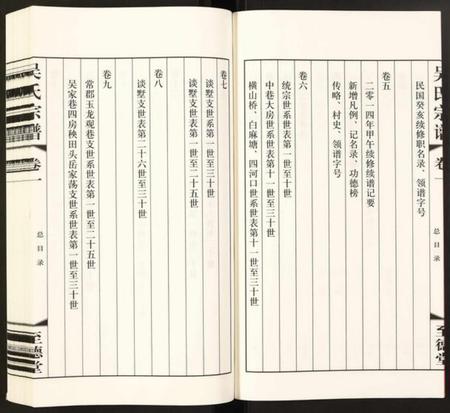 吴氏宗谱
卷一
总目录
至德堂
民国癸亥续修职名录、领谱字号
卷五
二零一四年甲午续修续谱记要
新增凡例、记名录、功德榜
传略、村史、领谱字号
卷六
统宗世系世表第一世至十世
中巷大房世系世表第十一世至三十世
横山桥、白麻塘、四河口世系世表第十一世至三十世
卷七
谈墅支世系第一世至三十世
谈墅支世表第一世至二十五世
卷八
谈墅支世表第二十六世至三十世
卷九
常郡玉龙观巷支世系世表第一世至二十五世
吴家巷四房秧田头岳家荡支世系世表第一世至三十世
吴氏宗谱
卷一
总目录
至德堂